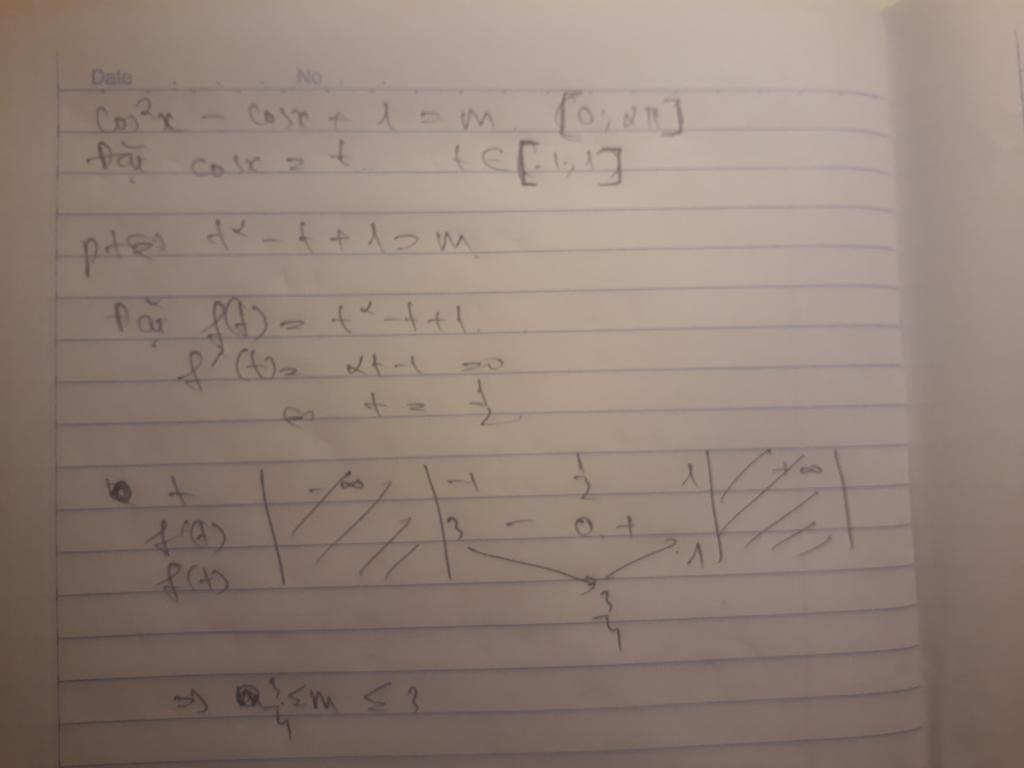 Date No
cos²x - cosx + 1 = m [0; 2π]
Đặt cosx = t t ∈ [-1; 1]
pt ⇔ t² - t + 1 = m
Đặt f(t) = t² - t + 1
f'(t) = 2t - 1 = 0
⇔ t = 1/2
t -∞ -1 1/2 1 +∞
f'(t) - 0 +
f(t) 3 3/4 1
⇒ 3/4 ≤ m ≤ 3